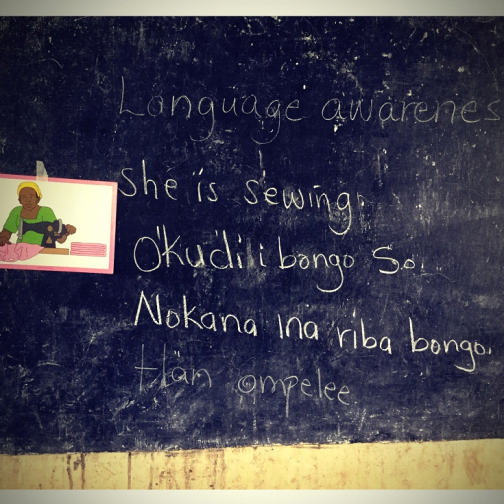 Language awarenes
she is sewing.
O'kudi i bongo so.
Nokana ina riba bongo.
tlan ompelee